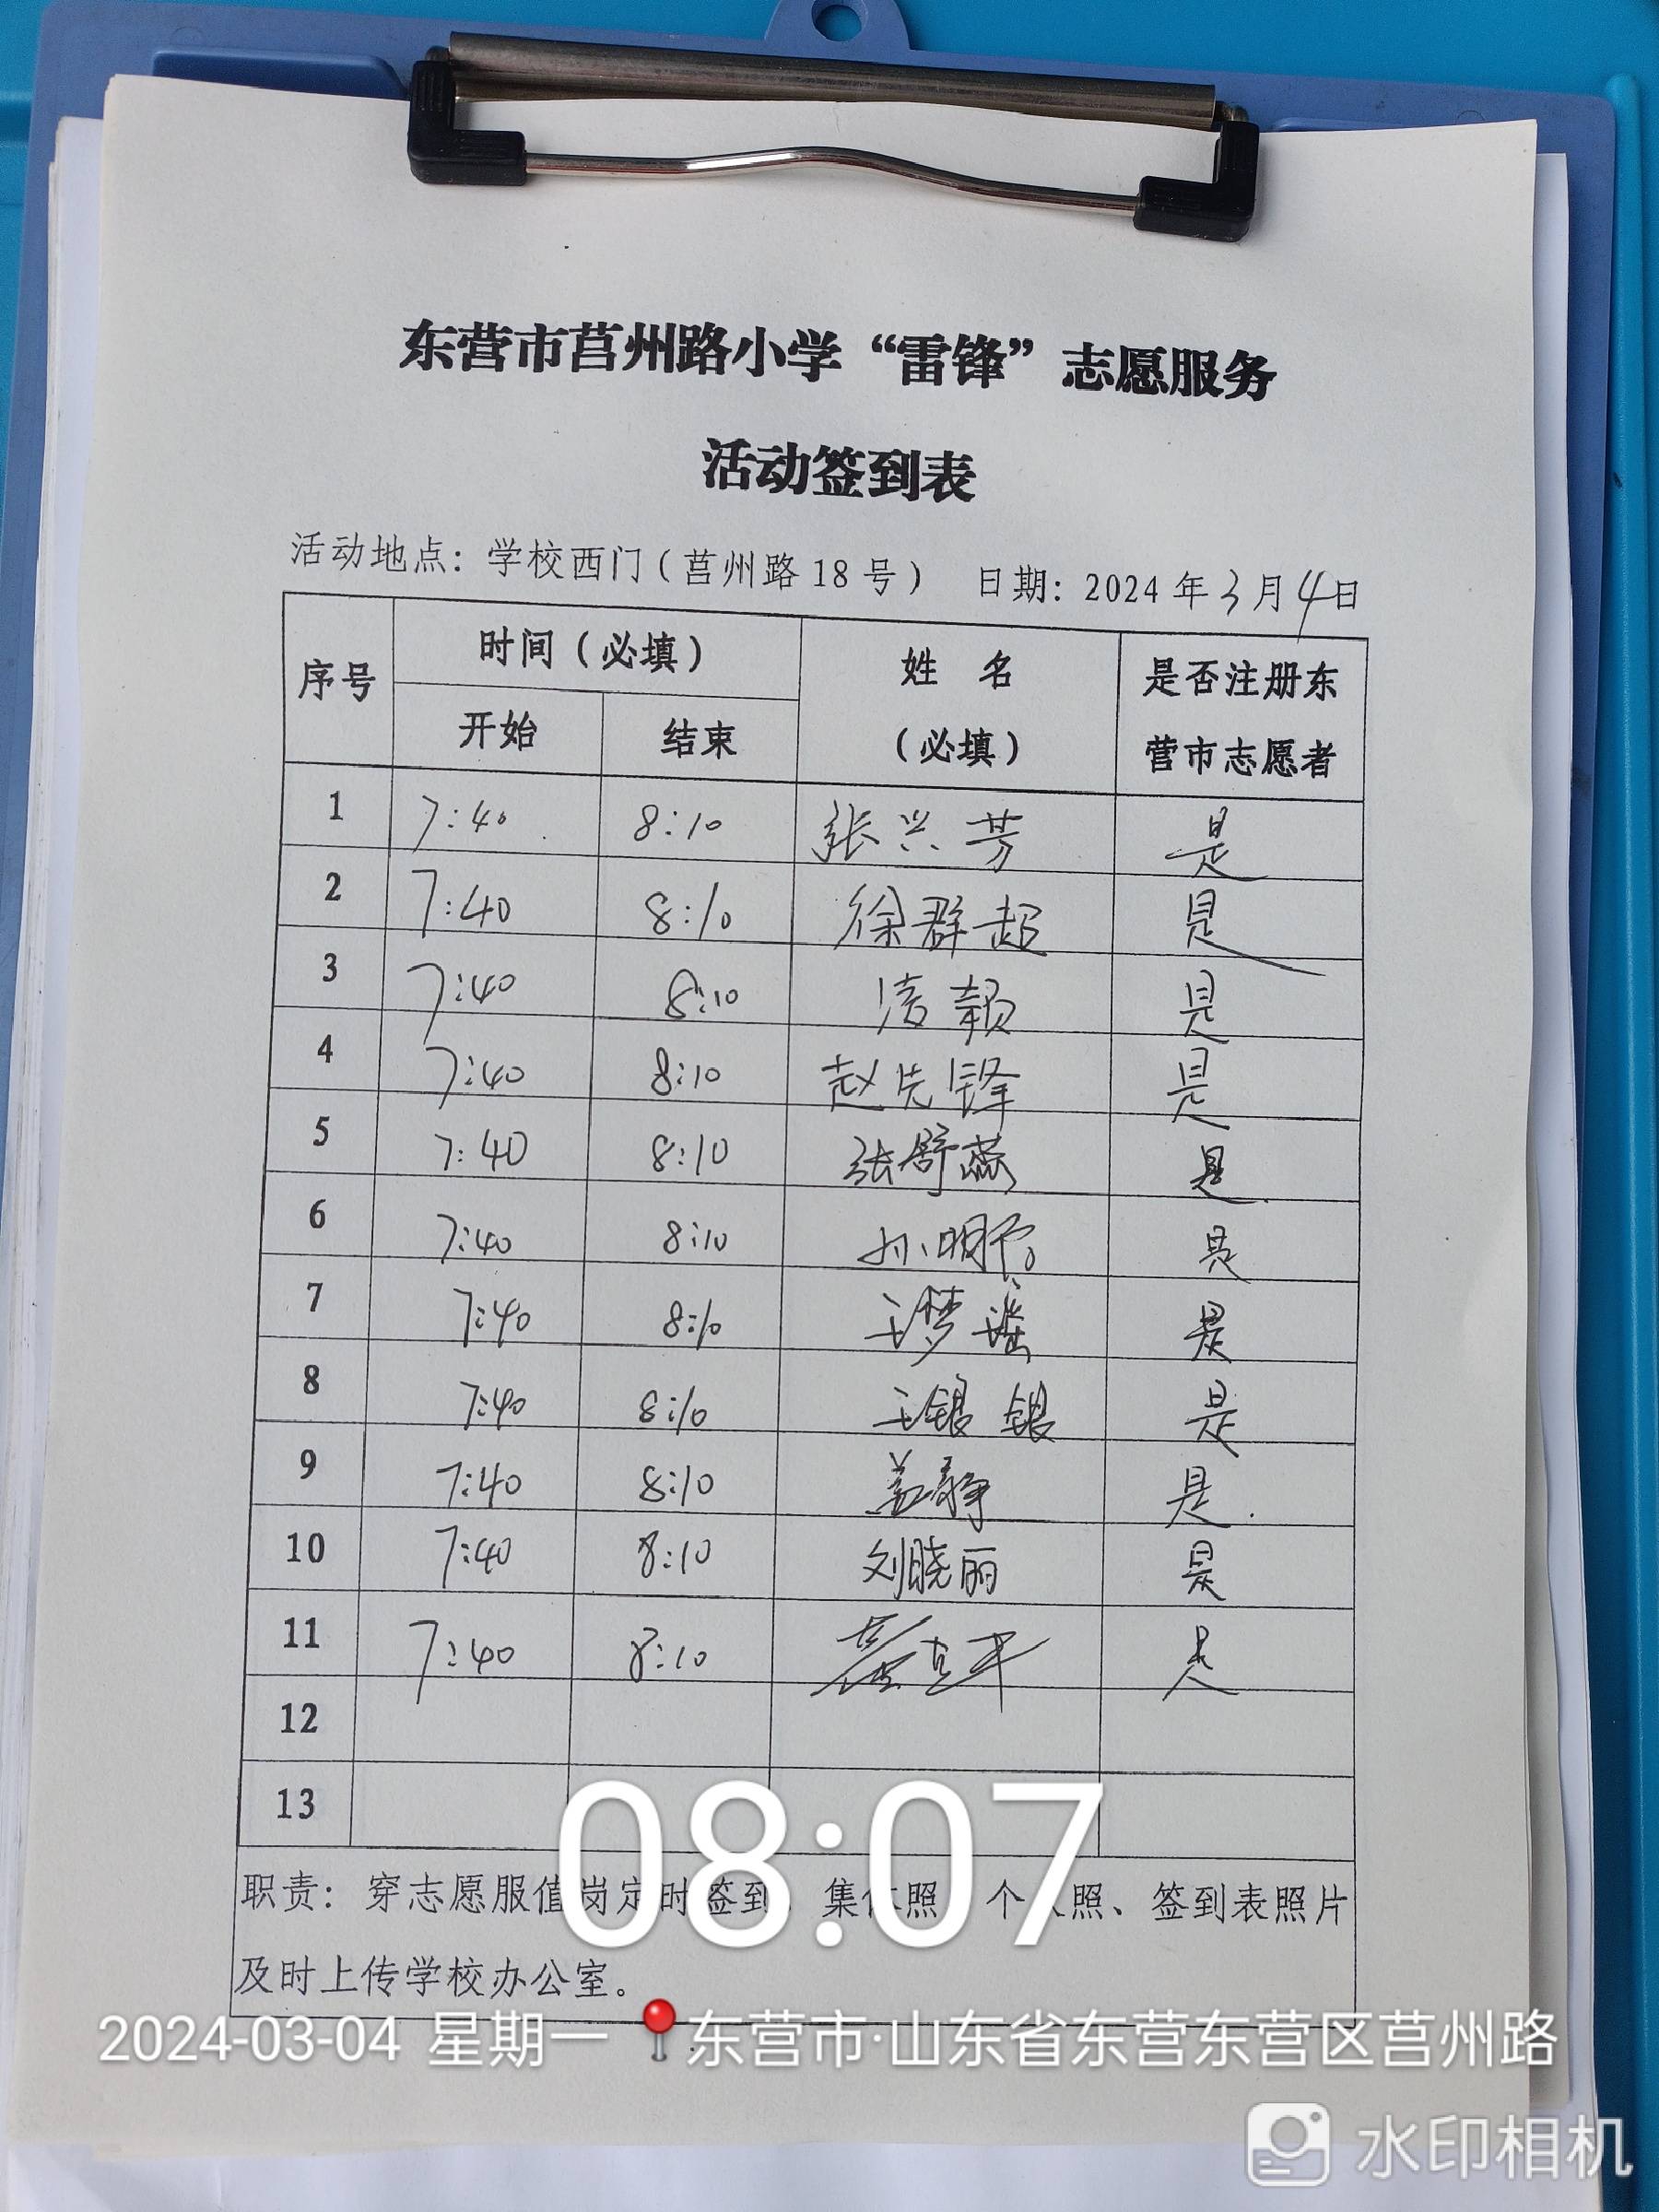 东营市莒州路小学“雷锋”志愿服务
活动签到表
活动地点：学校西门（莒州路18号） 日期：2024年3月4日
序号 时间（必填） 姓 名（必填） 是否注册东营市志愿者
开始 结束
1 7:40 8:10 张兴芳 是
2 7:40 8:10 徐群超 是
3 7:40 8:10 是
4 7:40 8:10 赵先锋 是
5 7:40 8:10 张舒蕊 是
6 7:40 8:10 孙明 是
7 7:40 8:10 王梦瑶 是
8 7:40 8:10 王银银 是
9 7:40 8:10 盖静 是.
10 7:40 8:10 刘晓丽 是
11 7:40 8:10 是
12
13
08:07
职责：穿志愿服值岗定时签到，集体照、个人照、签到表照片
及时上传学校办公室。
2024-03-04 星期一 东营市·山东省东营东营区莒州路
水印相机